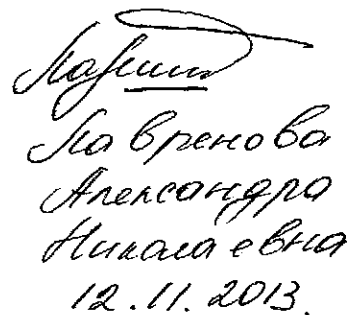 Лавренова
Александра
Николаевна
12.11.2013.